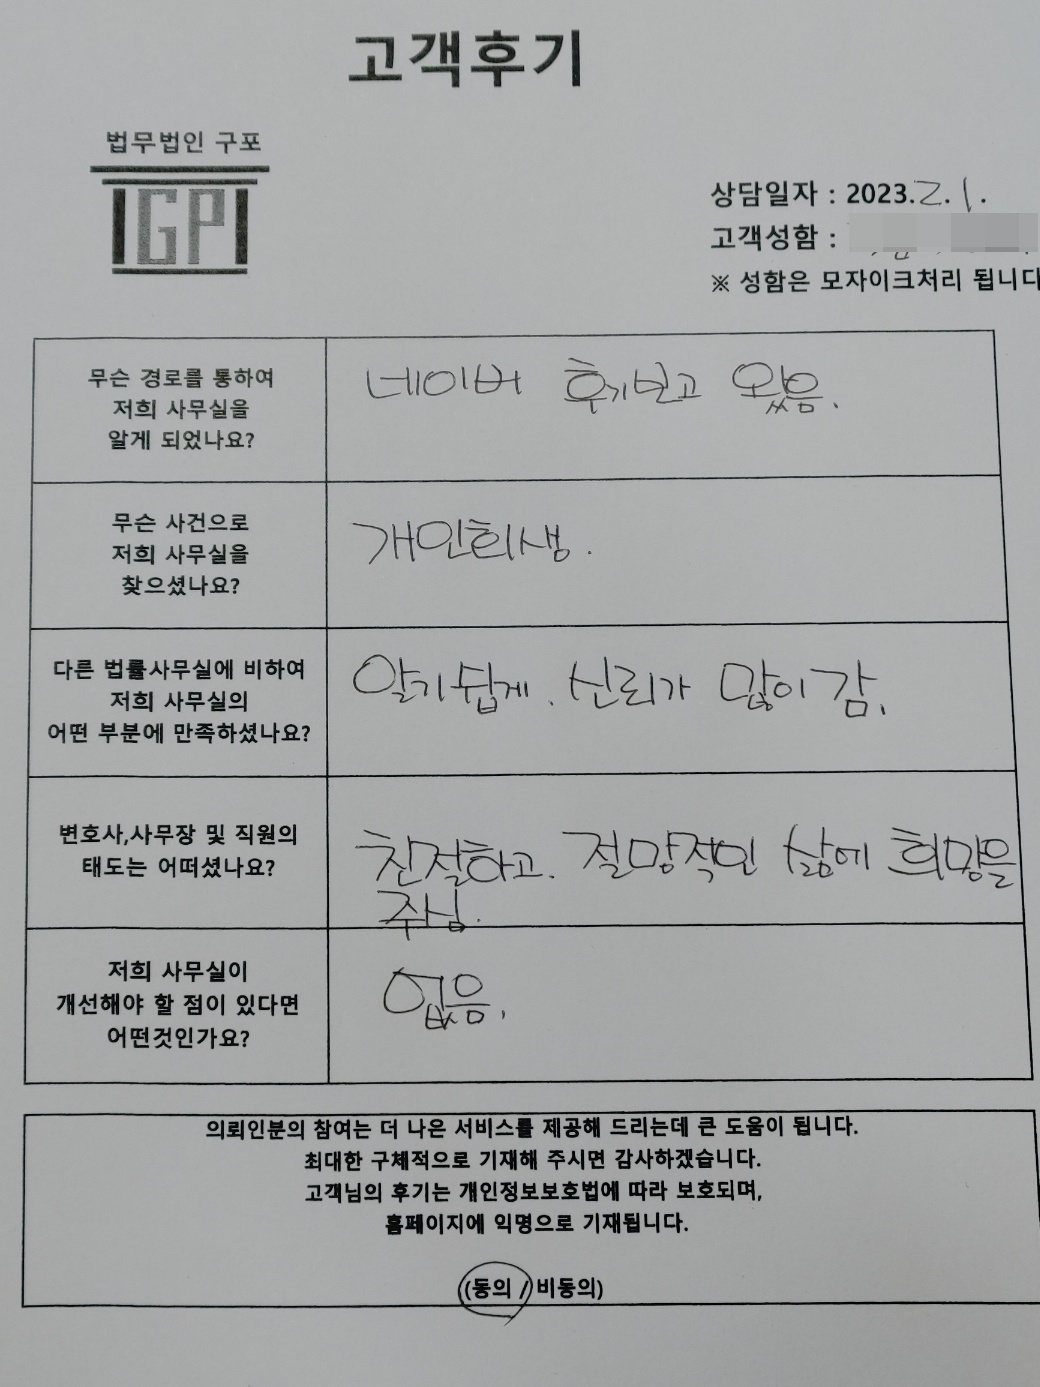 고객후기
법무법인 구포
IGPI
상담일자 : 2023.2.1.
고객성함 :
※ 성함은 모자이크처리 됩니다
무슨 경로를 통하여
저희 사무실을
알게 되었나요?
네이버 후기보고 왔음.
무슨 사건으로
저희 사무실을
찾으셨나요?
개인회생.
다른 법률사무실에 비하여
저희 사무실의
어떤 부분에 만족하셨나요?
알기쉽게. 신뢰가 많이 감.
변호사,사무장 및 직원의
태도는 어떠셨나요?
친절하고. 절망적인 삶에 희망을
주심.
저희 사무실이
개선해야 할 점이 있다면
어떤것인가요?
없음.
의뢰인분의 참여는 더 나은 서비스를 제공해 드리는데 큰 도움이 됩니다.
최대한 구체적으로 기재해 주시면 감사하겠습니다.
고객님의 후기는 개인정보보호법에 따라 보호되며,
홈페이지에 익명으로 기재됩니다.
(동의 / 비동의)